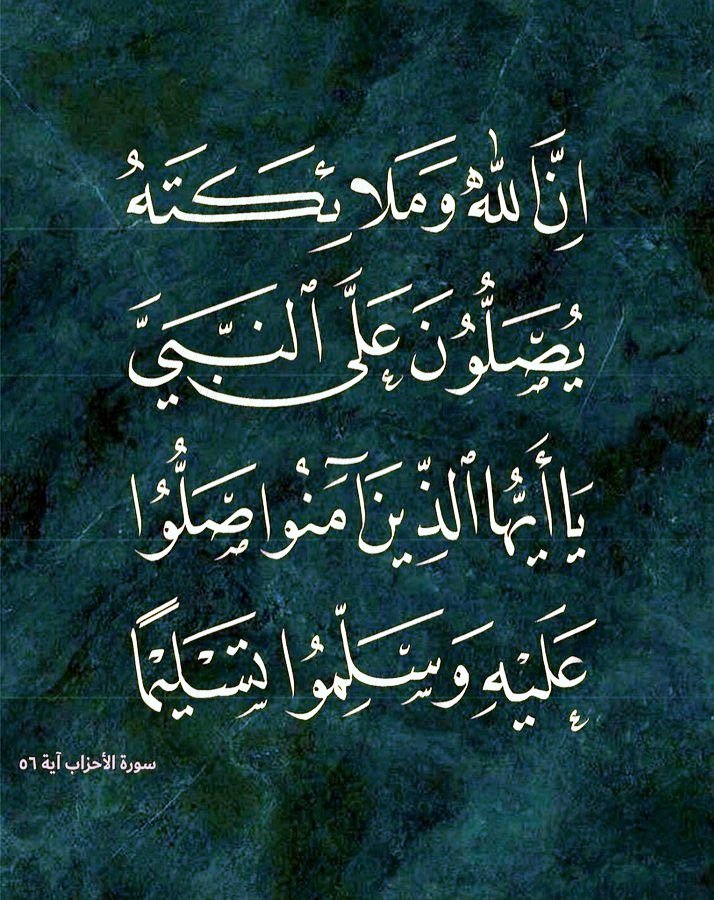 اِنَّ اللهَ وَمَلَائِكَتَهُ
يُصَلُّونَ عَلَى ٱلنَّبِيِّ
يَا أَيُّهَا ٱلَّذِينَ آمَنُوا صَلُّوا
عَلَيْهِ وَسَلِّمُوا تَسْلِيْمًا
سورة الأحزاب آية ٥٦